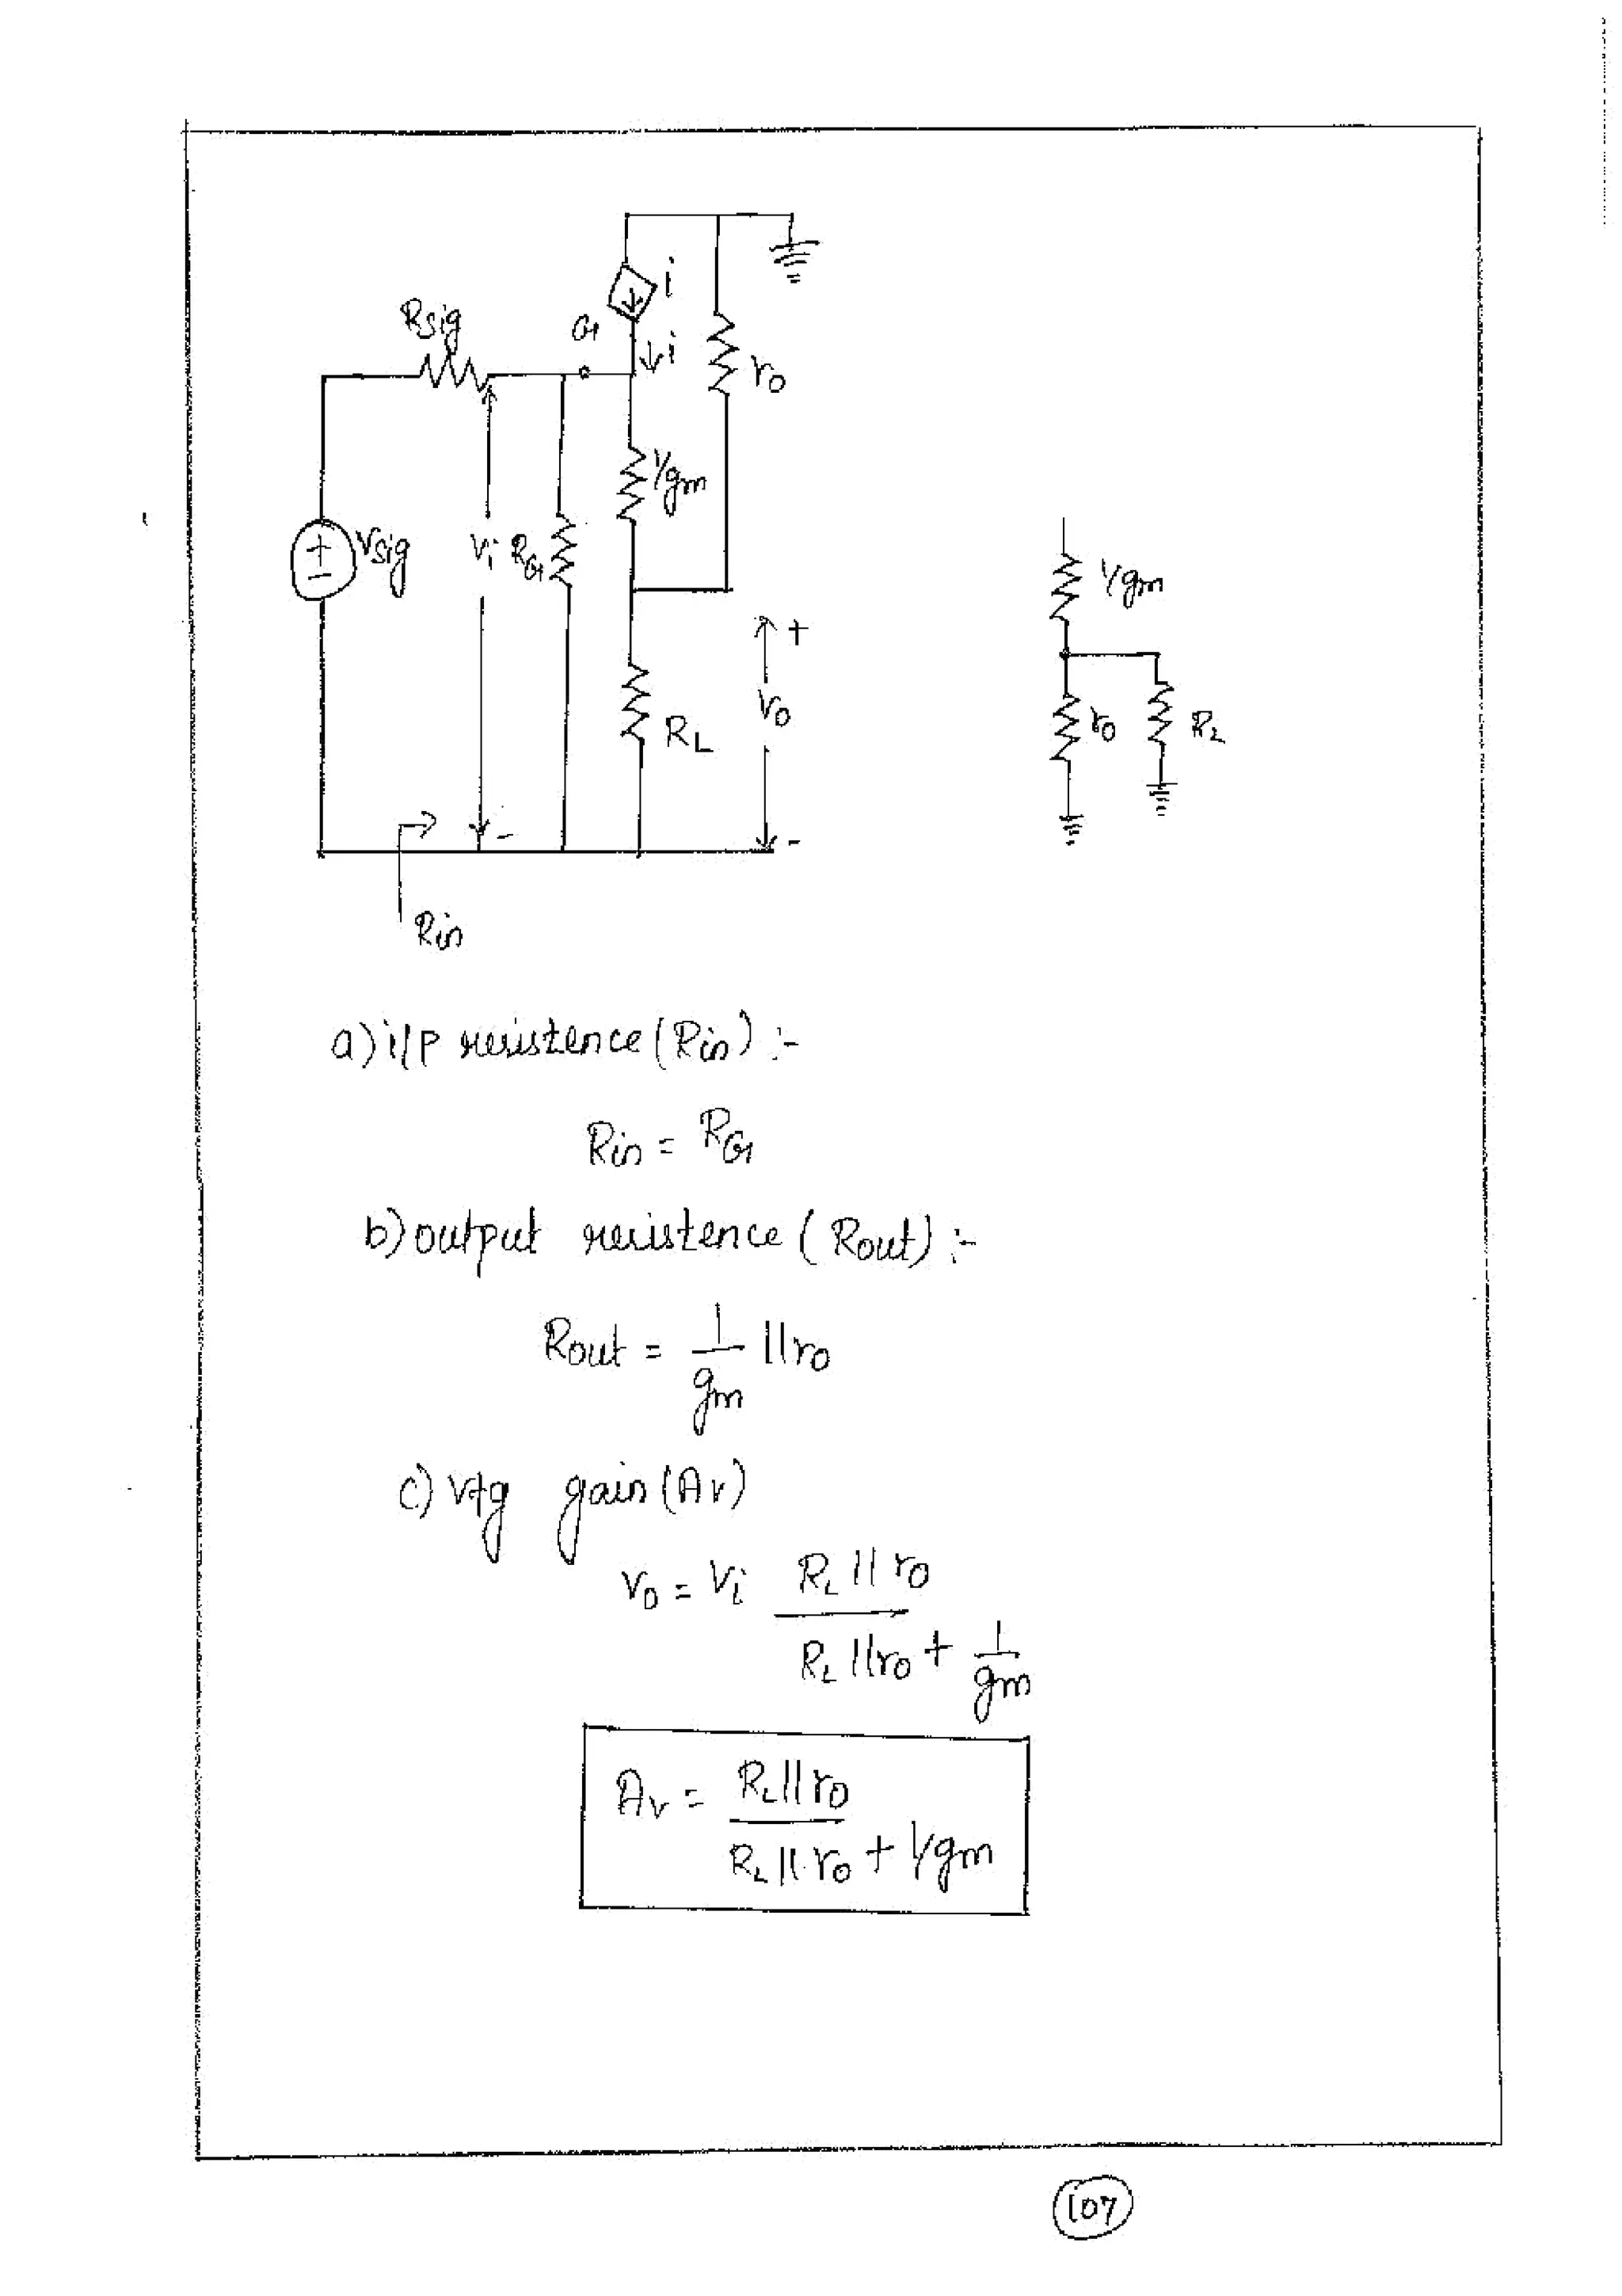 i
Rsig
G
i
ro
1/gm
Vsig
Vi
RG
+
Vo
RL
-
-
Rin
1/gm
ro
RL
a) i/p resistence (Rin) :-
Rin = RG
b) output resistence (Rout) :-
Rout = 1/gm || ro
c) vtg gain (Av)
Vo = Vi RL || ro / RL || ro + 1/gm
Av = RL || ro / RL || ro + 1/gm
107